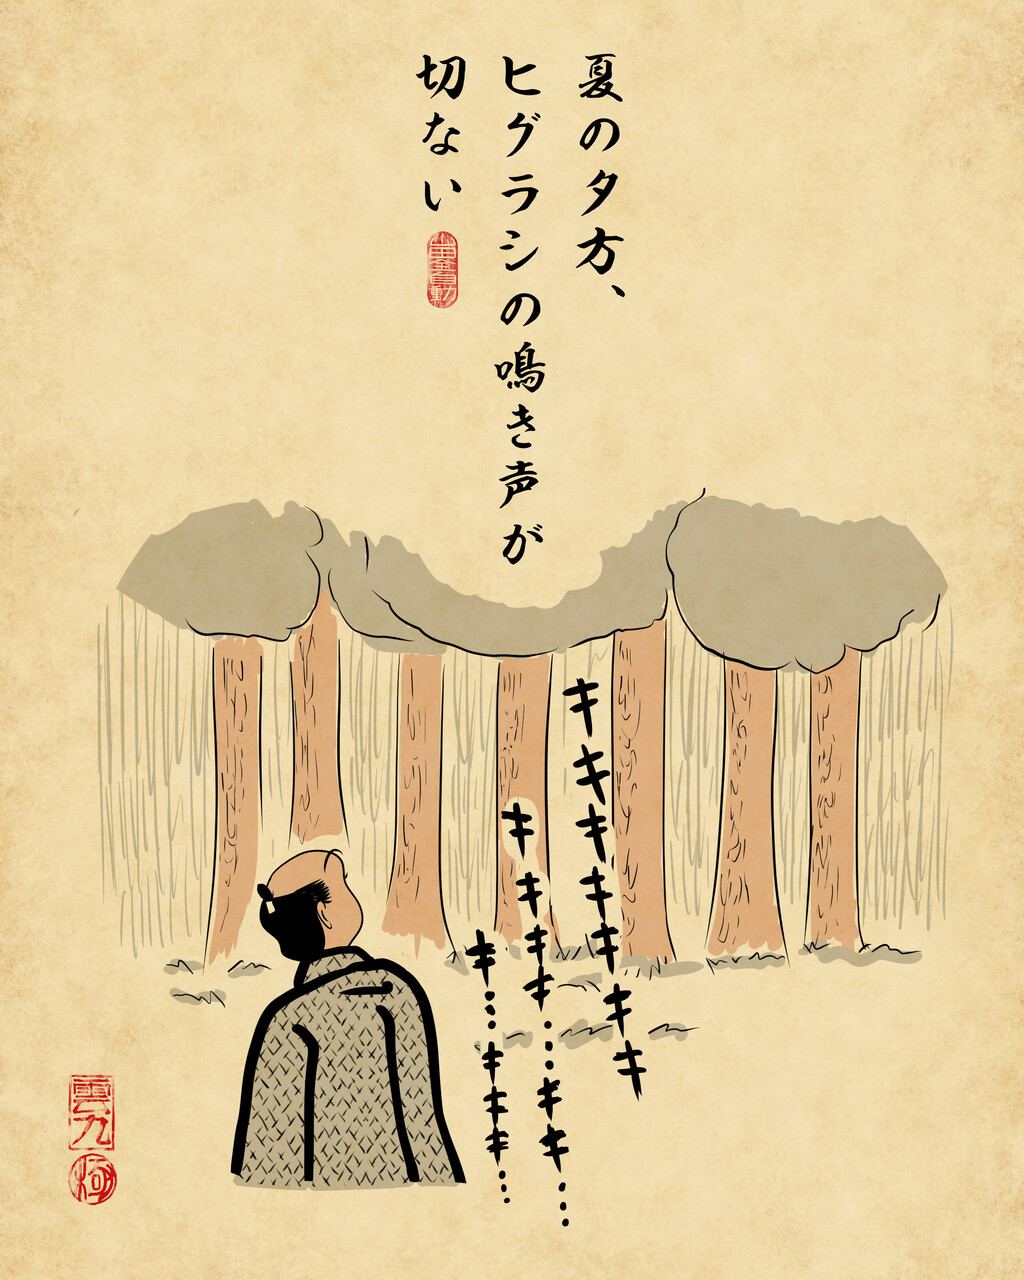 夏の夕方、
ヒグラシの鳴き声が
切ない
キキキキキキキ
キキキキ…キキ…
キ…キキキ…
雲九
極